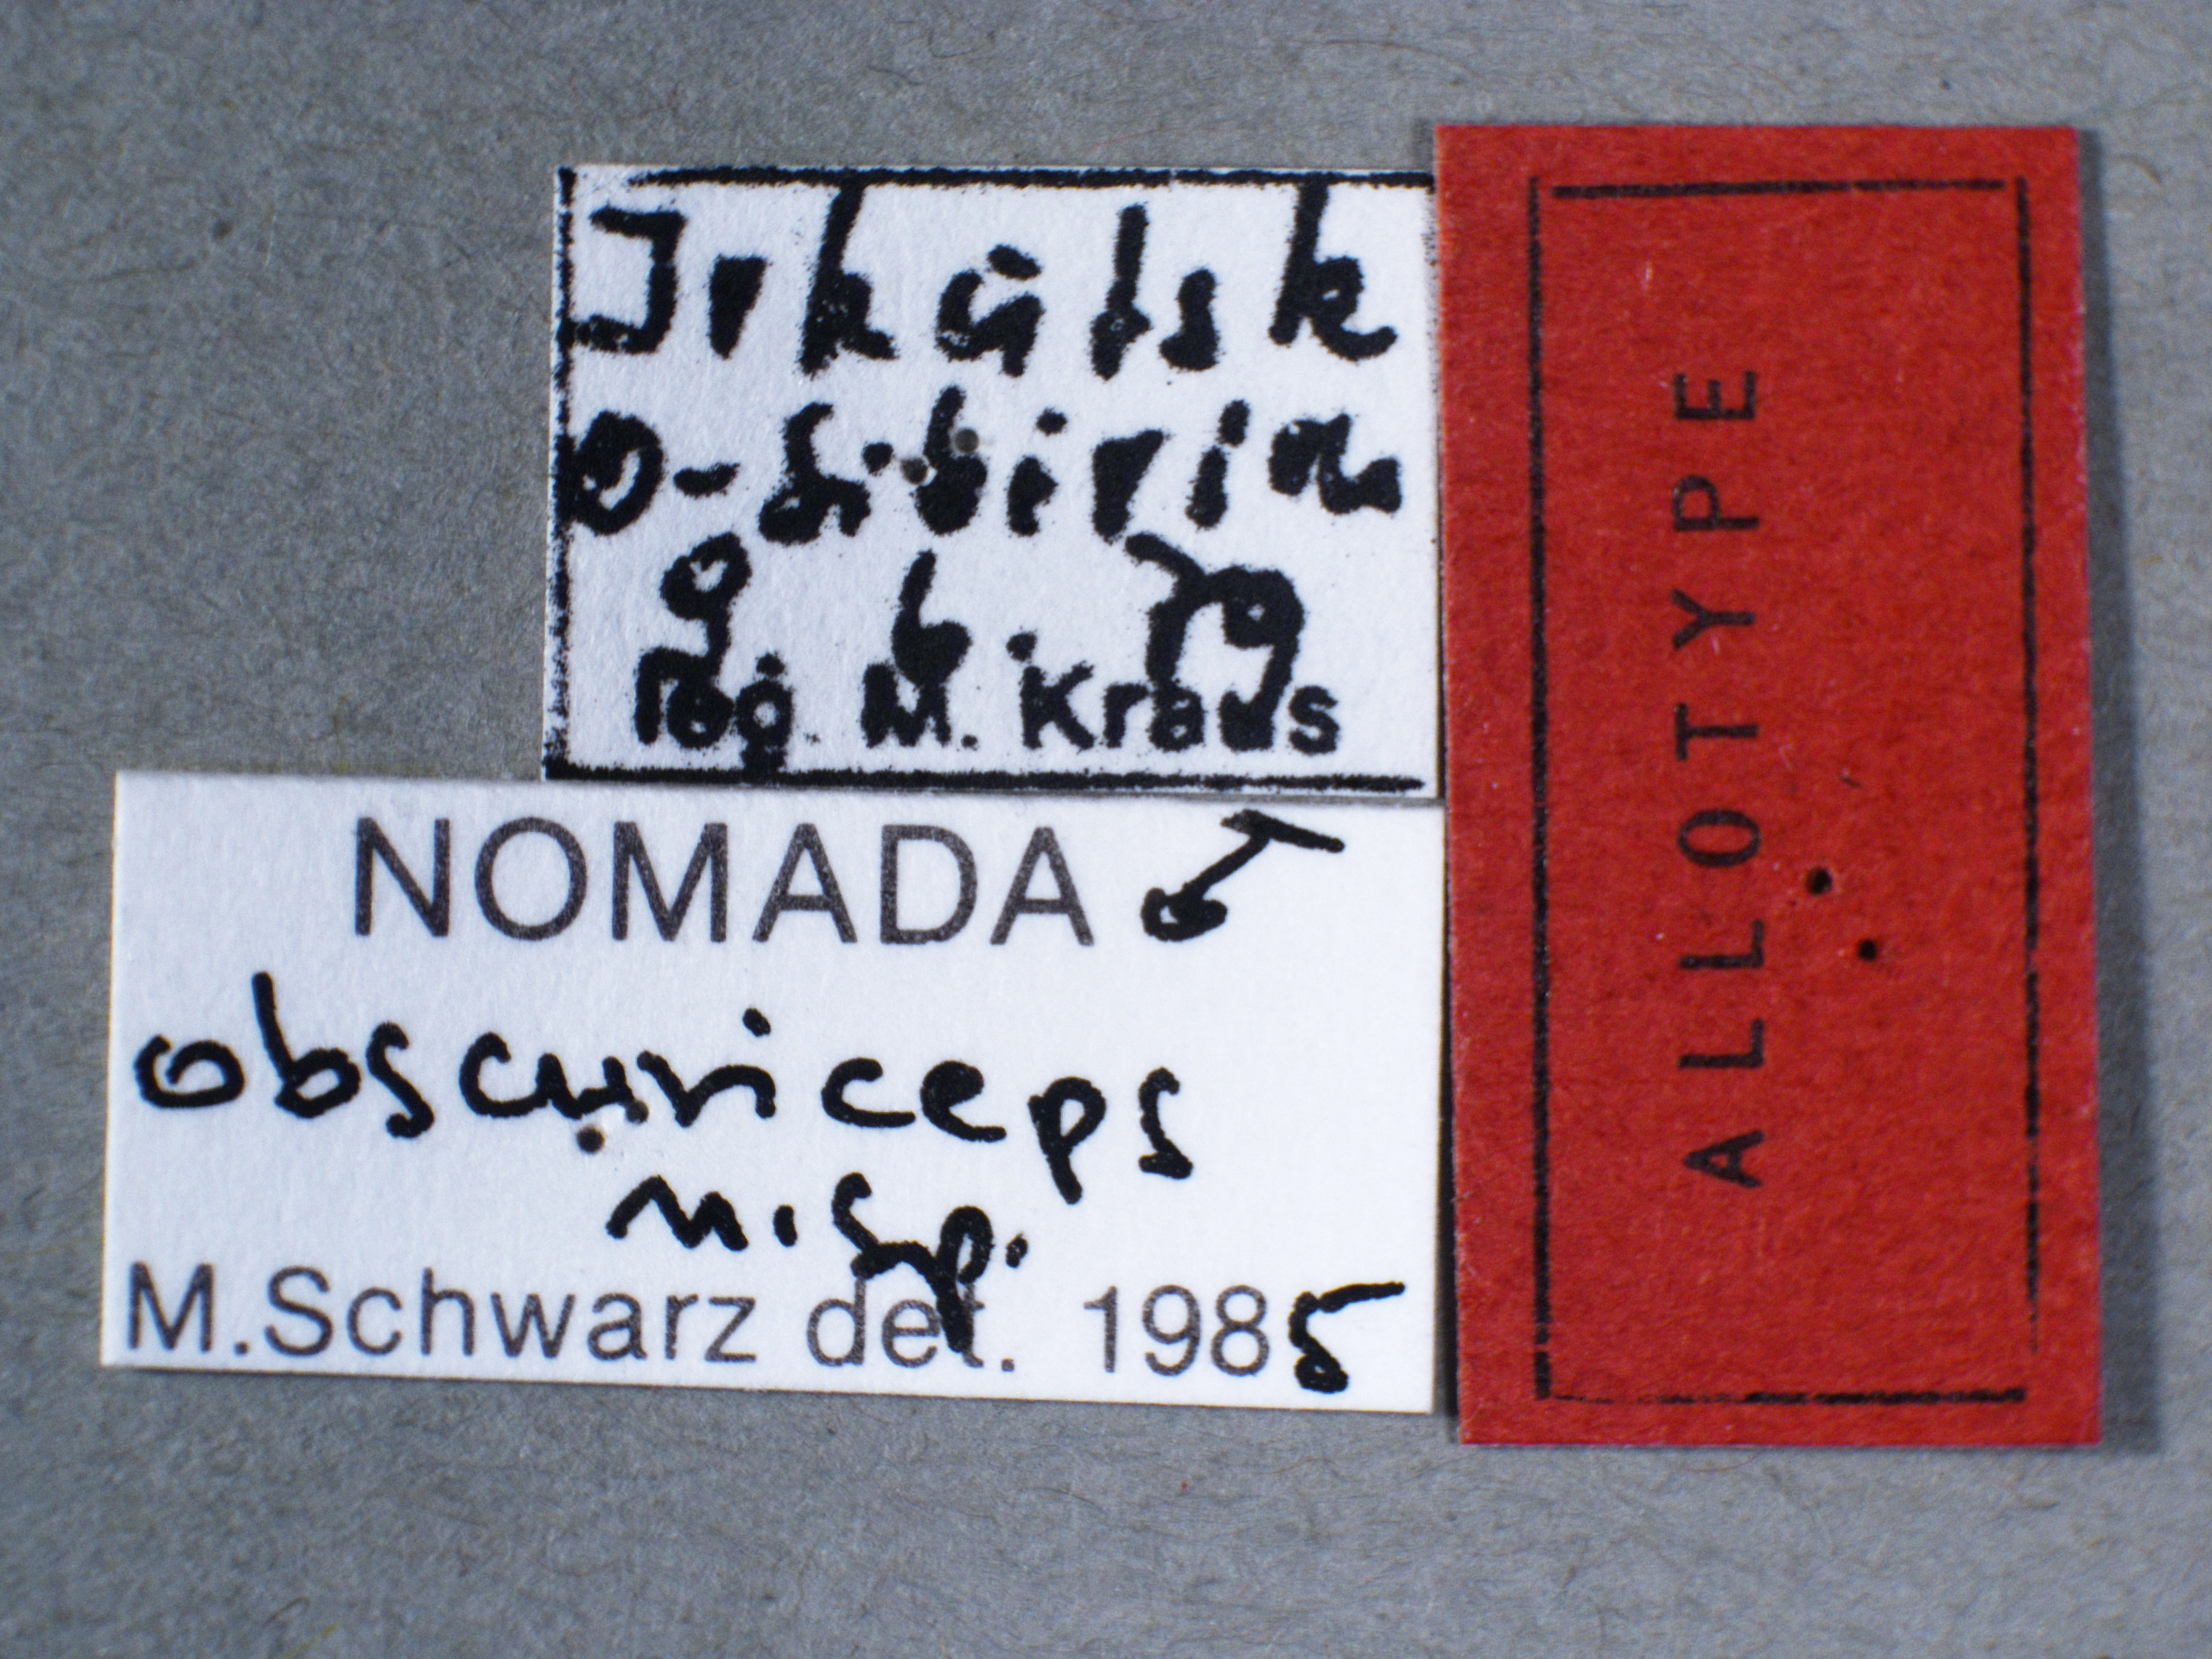 Irkutsk
O-Sibirien
9. 6. 79
leg. M. Kraus
NOMADA ♂
obscuriceps
n.sp.
M.Schwarz det. 1985
ALLOTYPE